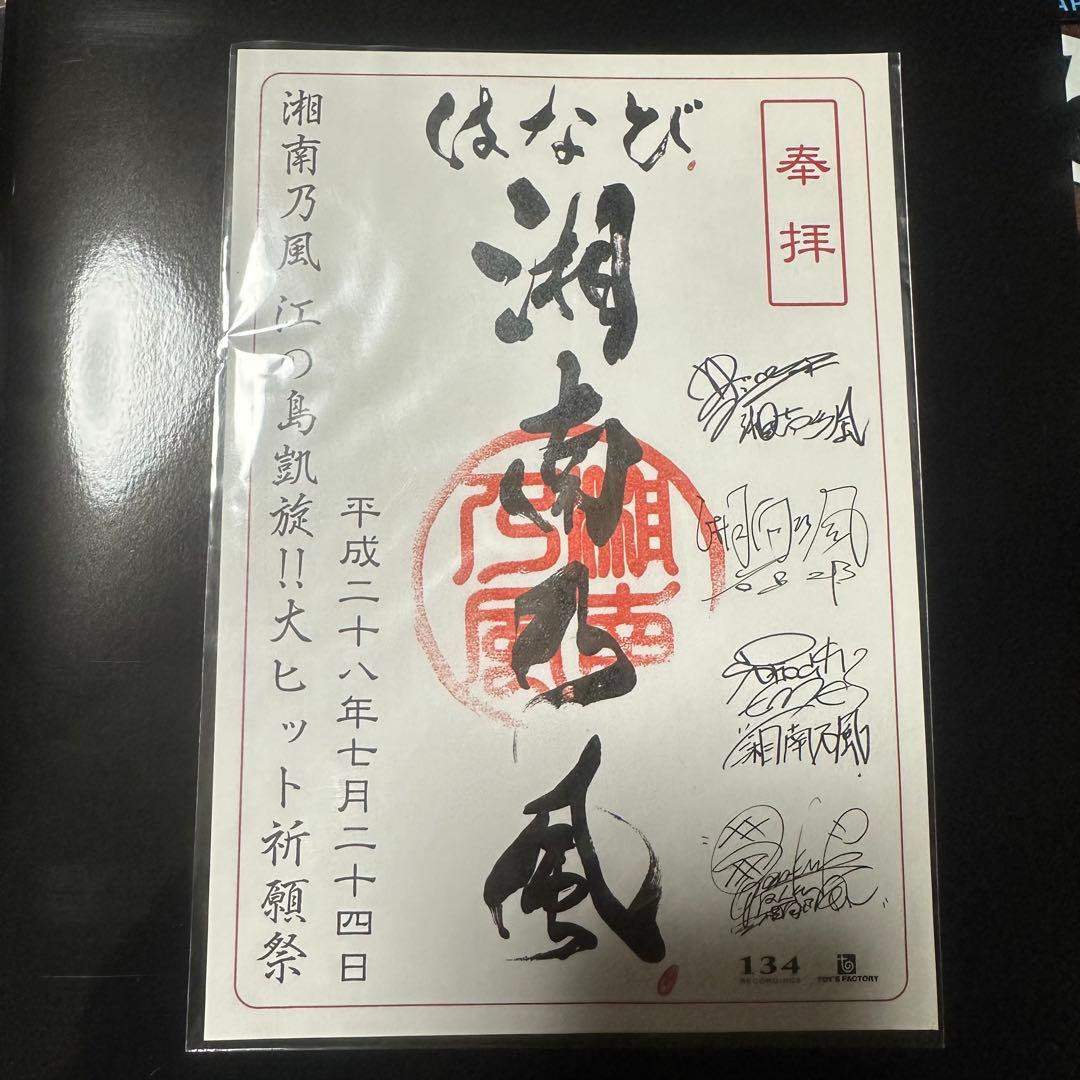 奉拝
はなび
湘南乃風
湘南乃風
平成二十八年七月二十四日
湘南乃風 江の島凱旋!!大ヒット祈願祭
湘南乃風
湘南乃風
湘南乃風
134
RECORDINGS
TOY'S FACTORY